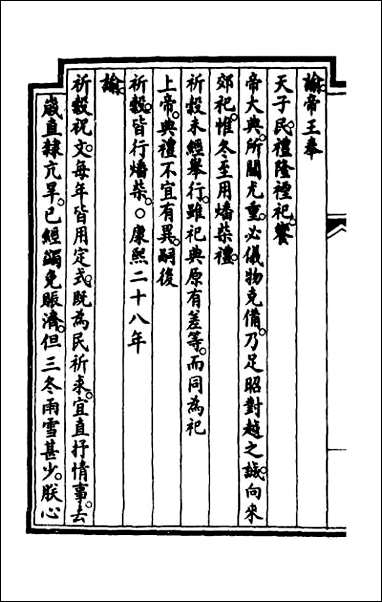 諭帝王奉
天子民禮隆禋祀饗
帝大典所關尤重必儀物克備乃足昭對越之誠向來
郊祀惟冬至用燔柴禮
祈穀未經舉行雖祀典原有差等而同為祀
上帝典禮不宜有異嗣後
祈穀皆行燔柴〇康熙二十八年
諭
祈穀祝文每年皆用定式既為民祈求宜直抒情事去
歲直隸亢旱已經蠲免賑濟但三冬雨雪甚少朕心